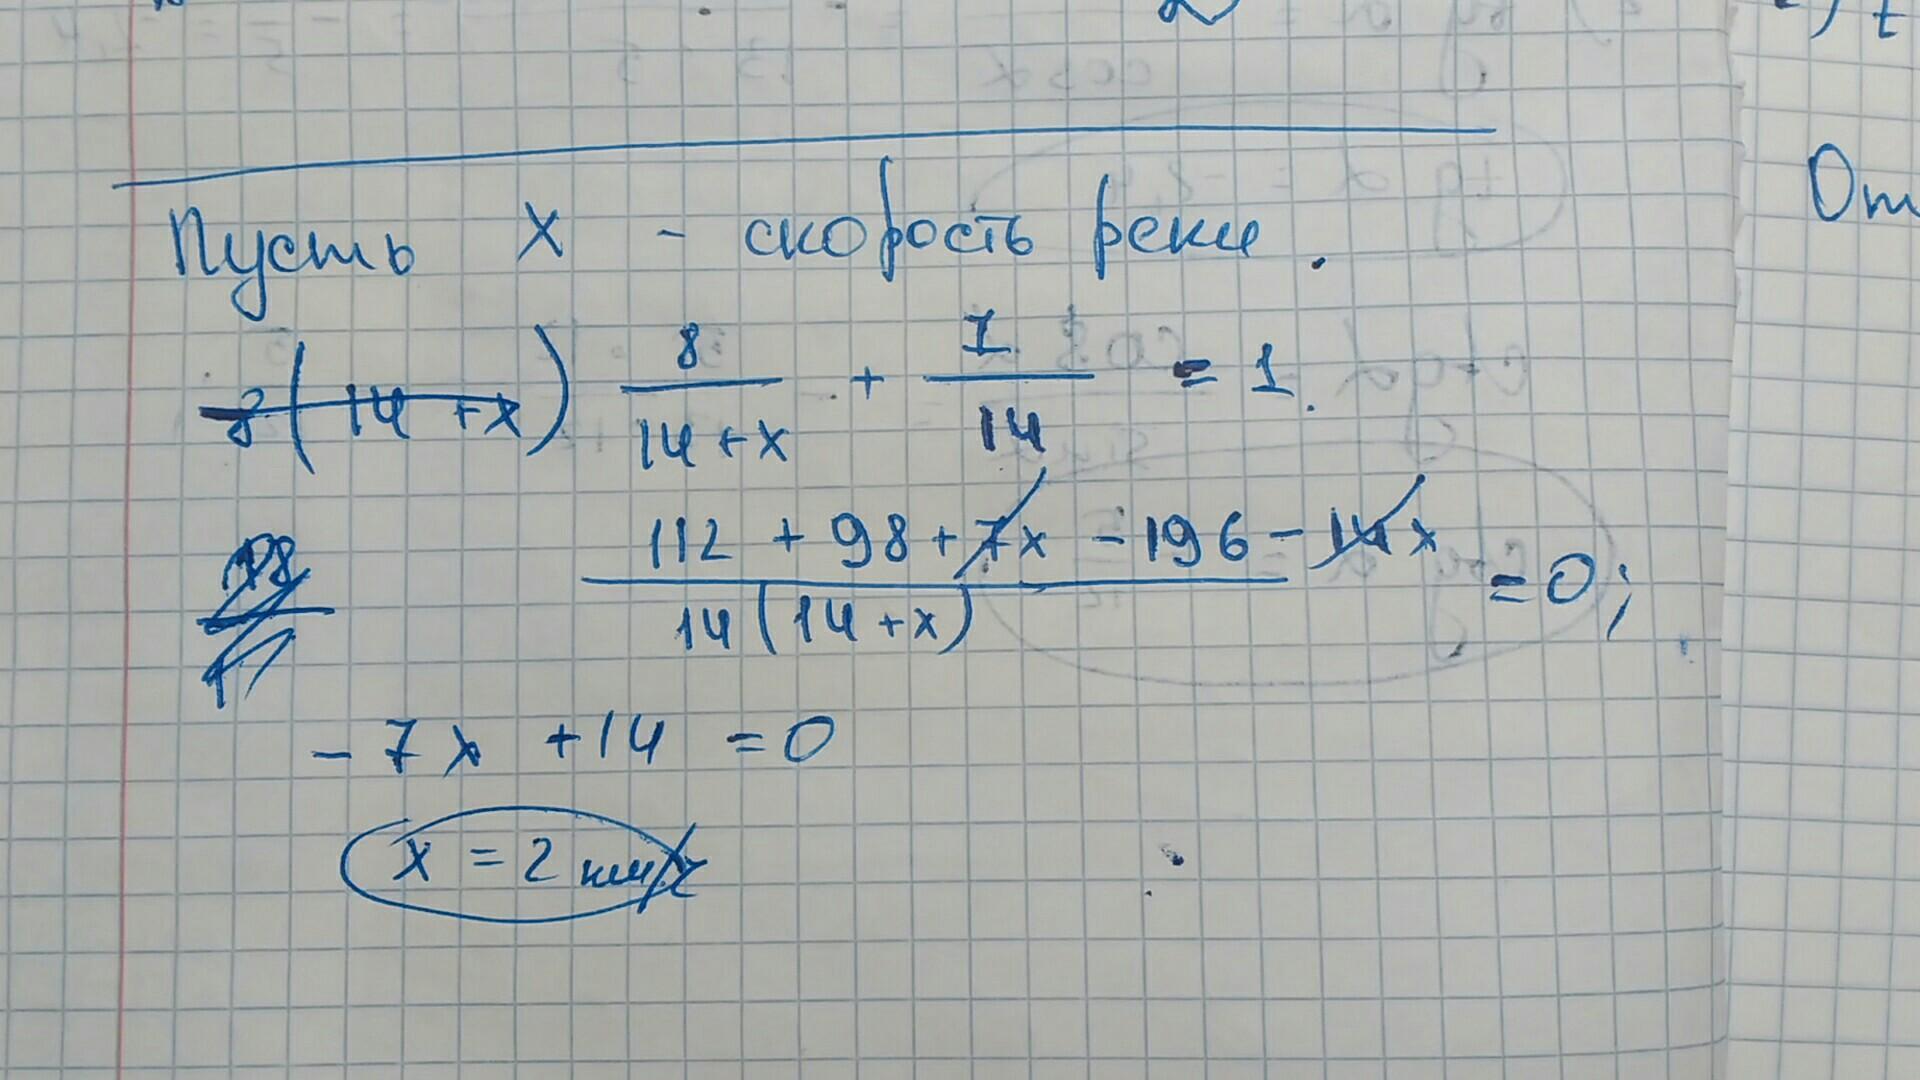 Пусть x - скорость реки.
8(14+x) 8/(14+x) + 7/14 = 1.
(112 + 98 + 7x - 196 - 14x)/(14(14+x)) = 0;
-7x +14 = 0
x = 2 км/ч
От